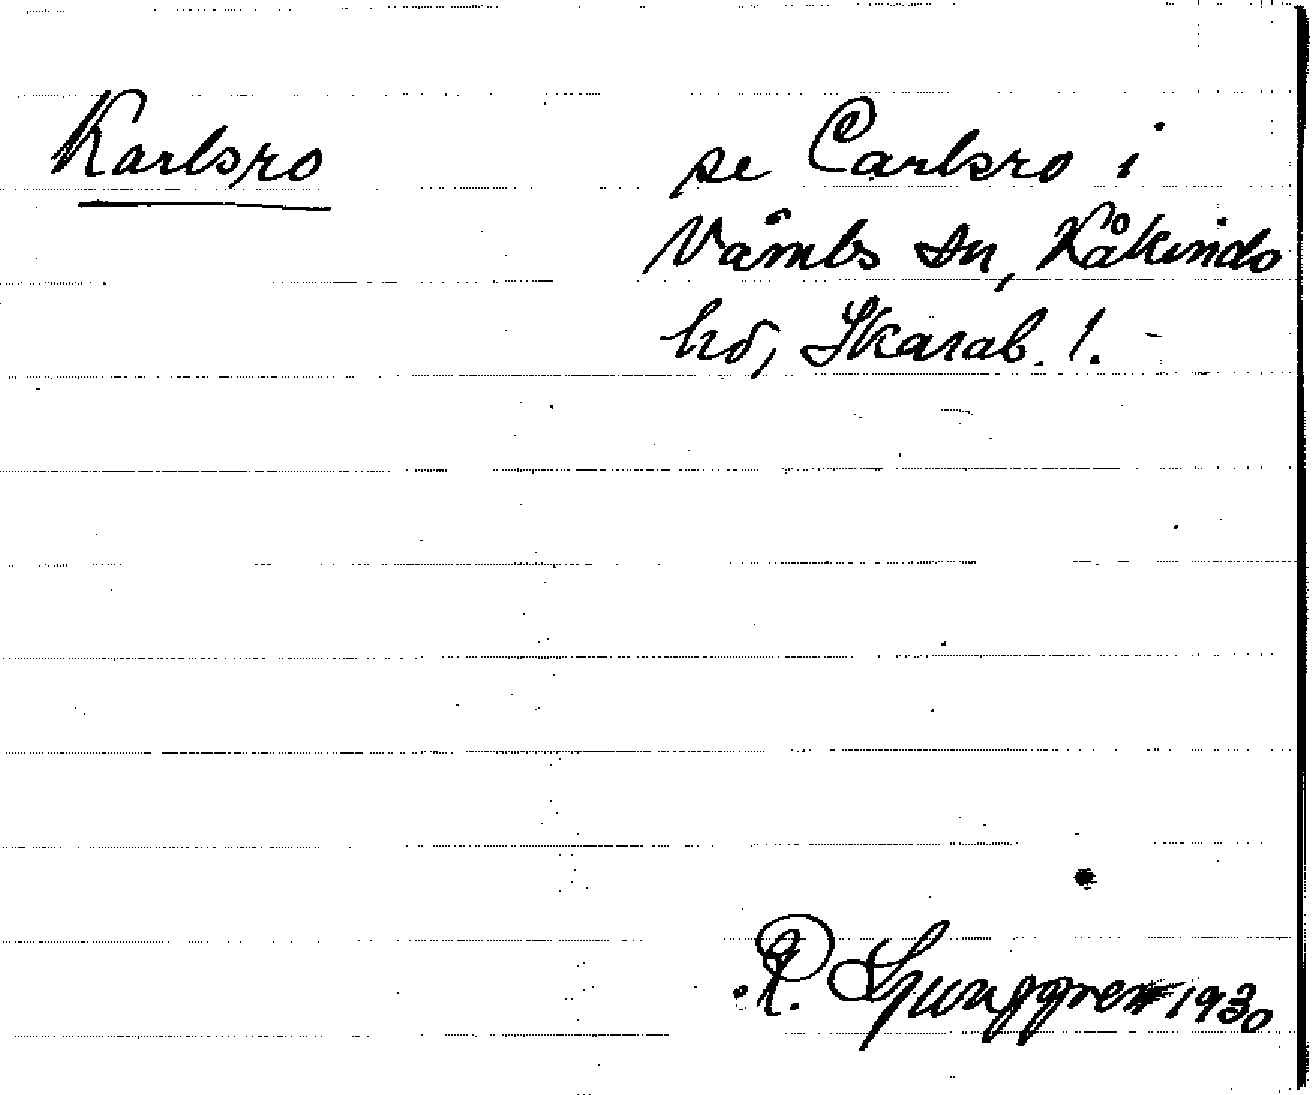 Karlsro
se Carlsro i
Våmbs sn, Kåkinds
hd, Skarab. l.
R. Ljunggren 1930